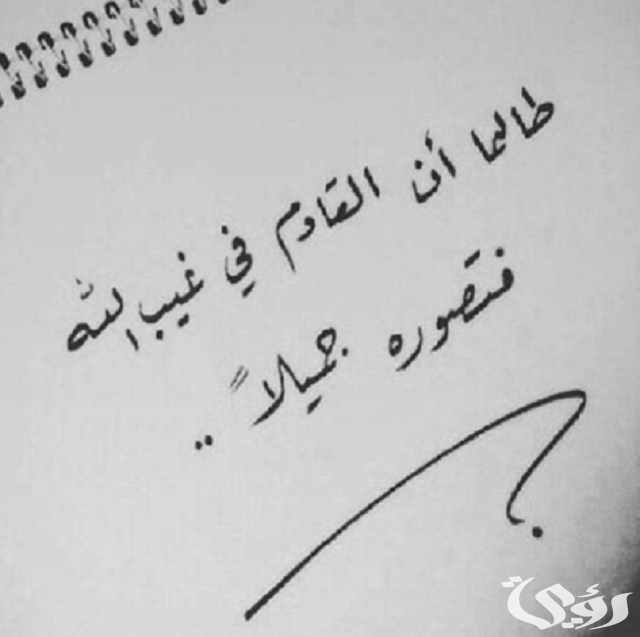 طالما أن القادم في غيب الله
فتصوره جميلاً ..
رؤية